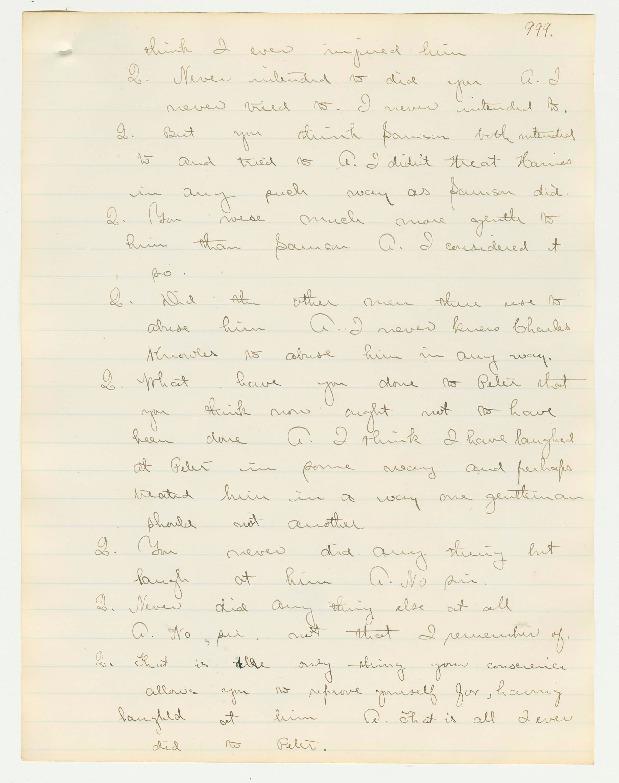 999.
think I ever injured him
Q. Never intended to did you A. I
never tried to. I never intended to.
Q. But you think Samson both intended
to and tried to A. I didn't treat Haines
in any such way as Samson did.
Q. You were much more gentle to
him than Samson A. I considered it
so.
Q. Did the other men there use to
abuse him A. I never knew Charles
Knowles to abuse him in any way.
Q. What have you done to Peter that
you think now ought not to have
been done A. I think I have laughed
at Peter in some way and perhaps
treated him in a way one gentleman
should not another
Q. You never did any thing but
laugh at him A. No sir.
Q. Never did any thing else at all
A. No, sir. not that I remember of.
Q. That is the only thing your conscience
allows you to reprove yourself for, having
laughed at him A. That is all I ever
did to Peter.